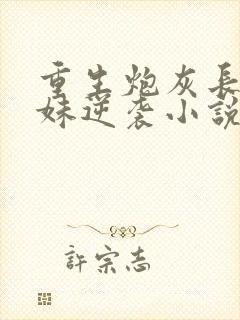 重生炮灰長
妹逆袭小說
許宗志